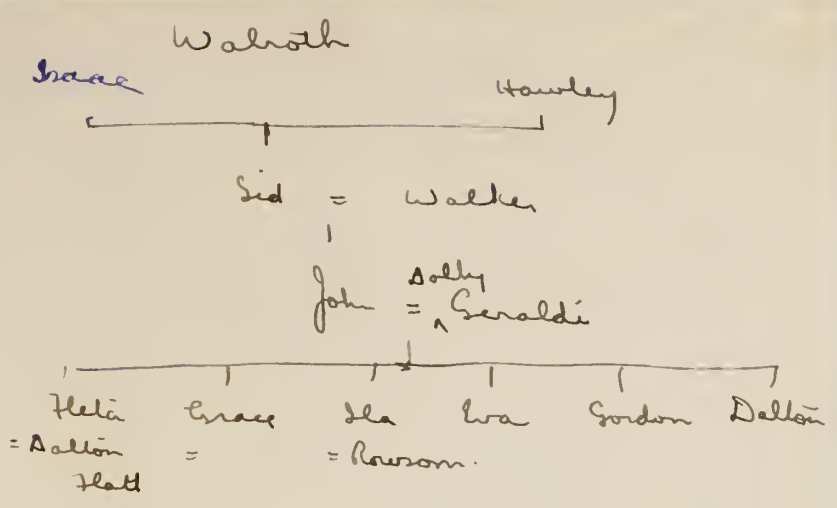 Walroth
Isaac Hawley
Sid = Walker
Dolly
John = ^ Geraldi
Fleta Grace Ila Eva Gordon Dalton
= Dalton = = Rowsom.
Flatt